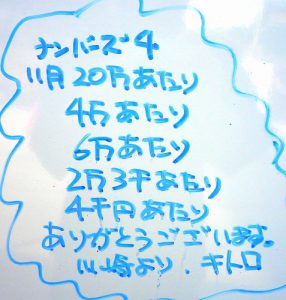 ナンバーズ4
11月20万あたり
4万あたり
6万あたり
2万3千あたり
4千円あたり
ありがとうございます。
川崎より.キトロ